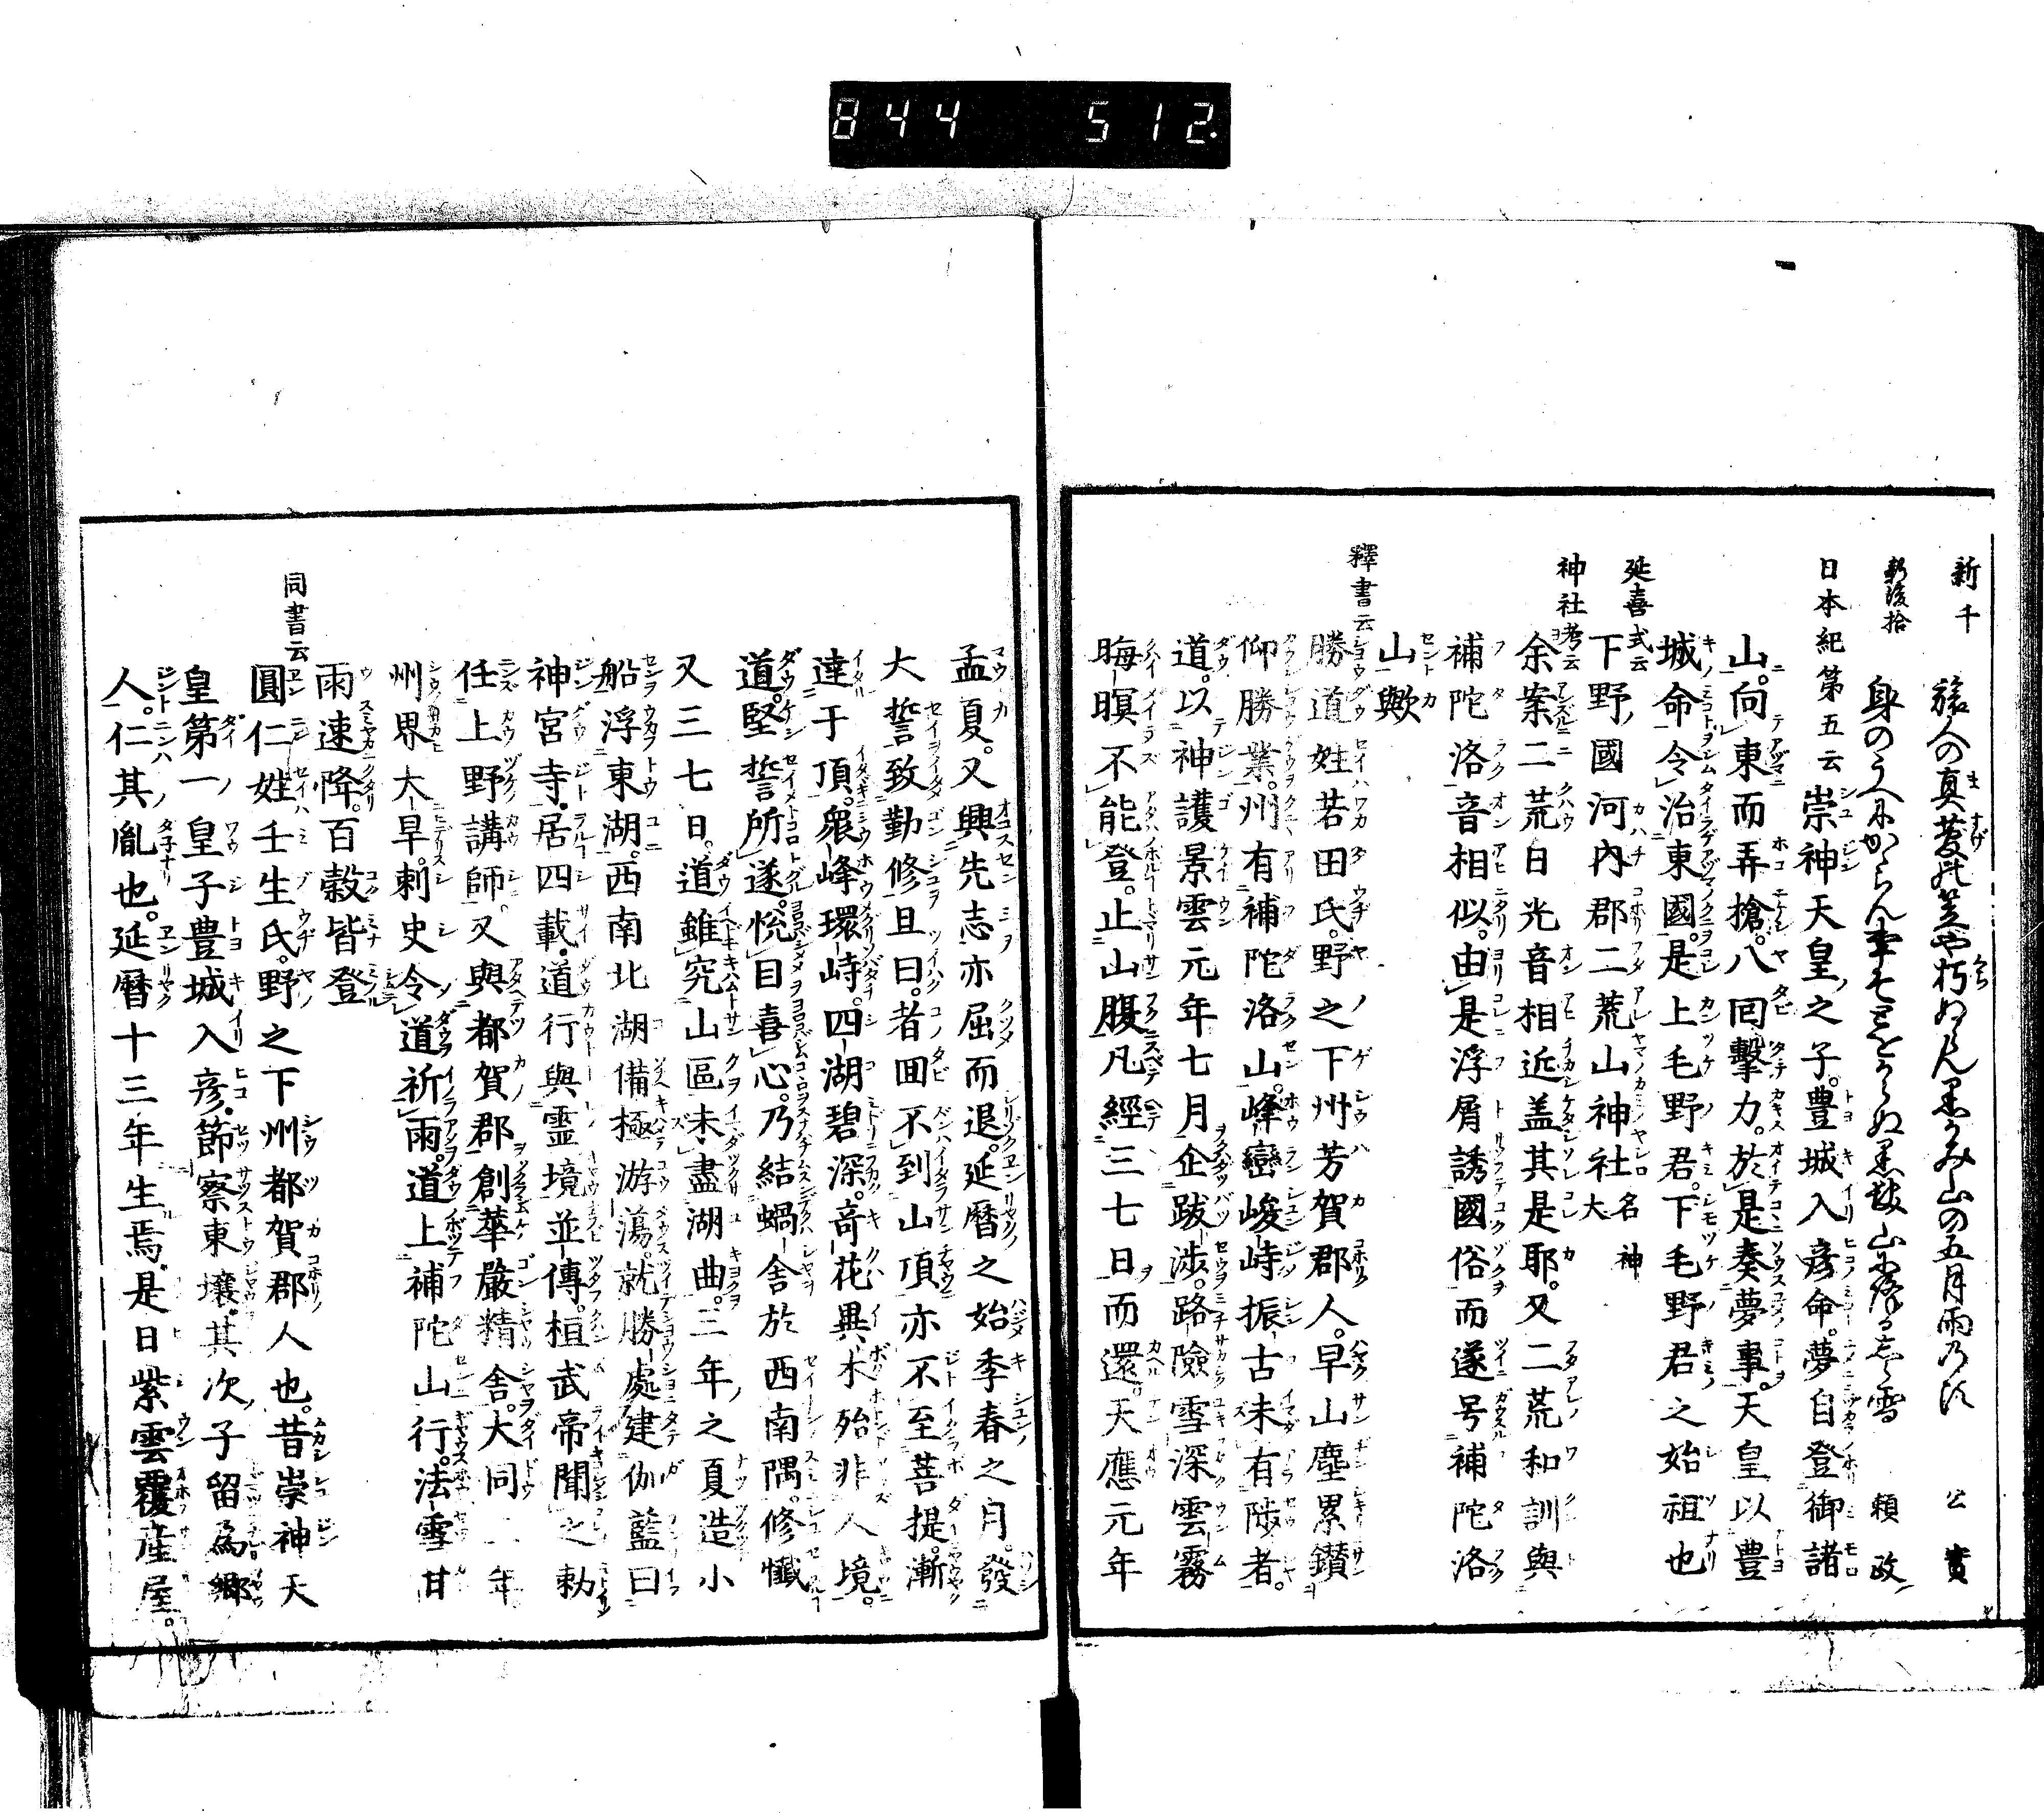 844 512
新千 旅人の真菅の笠や朽ぬらんくろかみ山の五月雨乃比 公實
新後拾 身のうへにかからん事そ遠からぬ黒髪山にふれる志ら雪 頼政
日本紀第五云 崇神天皇之子。豊城入彦命。夢自登御諸
山。向東而弄搶。八囘擊力。於是奏夢事。天皇以豊
城命令治東國。是上毛野君。下毛野君之始祖也
延喜式云 下野國河内郡二荒山神社 名神大
神社考云 余案二荒日光音相近盖其是耶。又二荒和訓與
補陀洛音相似。由是浮屠誘國俗而遂号補陀洛
山歟
釋書云 勝道姓若田氏。野之下州芳賀郡人。早山塵累鑚
仰勝業。州有補陀洛山。峰巒峻峙振古未有陟者。
道。以神護景雲元年七月企跋涉。路險雪深雲霧
晦暝不能登。止山腹凡經三七日而還。天應元年
孟夏。又興先志亦屈而退。延曆之始季春之月。發
大誓致勤修且曰。者囬不到山頂亦不至菩提。漸
達于頂。衆峰環峙。四湖碧深。竒花異木殆非人境。
道。堅誓所遂。悅目喜心。乃結蝸舎於西南隅。修懺
又三七日。道雖究山區未盡湖曲。三年之夏造小
船浮東湖。西南北湖備極游蕩。就勝處建伽藍曰
神宮寺。居四載。道行與霊境並傳。桓武帝聞之勅
任上野講師。又與都賀郡創華嚴精舎。大同二年
州界大旱。刺史令道祈雨。道上補陀山行法。雪甘
雨速降。百穀皆登
同書云 圓仁姓壬生氏。野之下州都賀郡人也。昔崇神天
皇第一皇子豊城入彦。節察東壤。其次子留爲郷
人。仁其胤也。延曆十三年生焉。是日紫雲覆産屋。